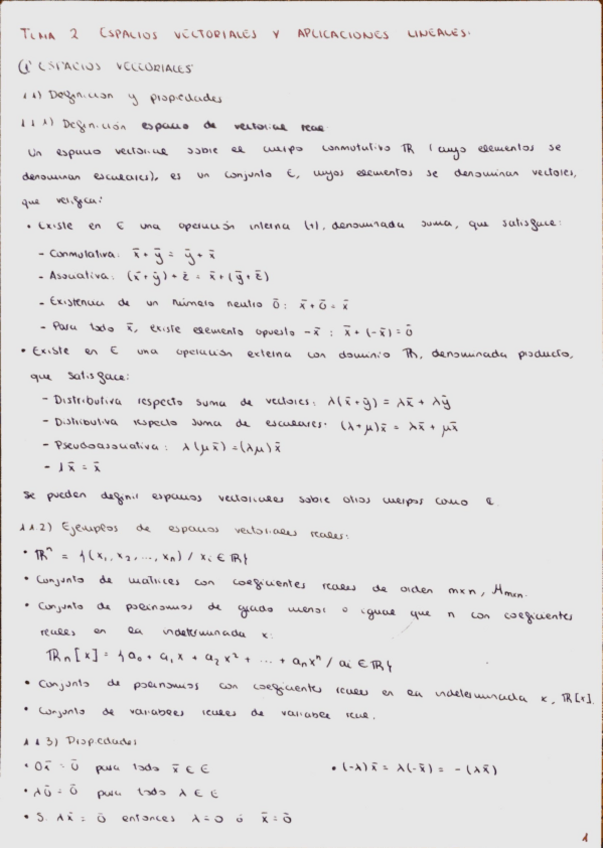 TEMA 2 ESPACIOS VECTORIALES Y APLICACIONES LINEALES.
1) ESPACIOS VECTORIALES
1.1) Definición y propiedades
1.1.1) Definición espacio de vectorial real
Un espacio vectorial sobre el cuerpo conmutativo ℝ (cuyo elementos se
denominan escalares), es un conjunto E, cuyos elementos se denominan vectores,
que verifica:
• Existe en E una operación interna (+), denominada suma, que satisface:
- Conmutativa: x̄ + ȳ = ȳ + x̄
- Asociativa: (x̄ + ȳ) + z̄ = x̄ + (ȳ + z̄)
- Existencia de un número neutro 0̄ : x̄ + 0̄ = x̄
- Para todo x̄, existe elemento opuesto -x̄ : x̄ + (-x̄) = 0̄
• Existe en E una operación externa con dominio ℝ, denominada producto,
que satisface:
- Distributiva respecto suma de vectores: λ(x̄ + ȳ) = λx̄ + λȳ
- Distributiva respecto suma de escalares: (λ+μ)x̄ = λx̄ + μx̄
- Pseudoasociativa: λ(μx̄) = (λμ)x̄
- 1x̄ = x̄
Se pueden definir espacios vectoriales sobre otros cuerpos como
1.1.2) Ejemplos de espacios vectoriales reales:
• ℝⁿ = {(x₁, x₂, ..., xₙ) / xᵢ ∈ ℝ}
• Conjunto de matrices con coeficientes reales de orden m×n, Mₘₓₙ.
• Conjunto de polinomios de grado menor o igual que n con coeficientes
reales en la indeterminada x:
ℝₙ[x] = {a₀ + a₁x + a₂x² + ... + aₙxⁿ / aᵢ ∈ ℝ}
• Conjunto de polinomios con coeficientes reales en la indeterminada x, ℝ[x].
• Conjunto de variables reales de variable real.
1.1.3) Propiedades
• 0x̄ = 0̄ para todo x̄ ∈ E
• (-λ)x̄ = λ(-x̄) = -(λx̄)
• λ0̄ = 0̄ para todo λ ∈ E
• Si λx̄ = 0̄ entonces λ=0 ó x̄=0̄
1